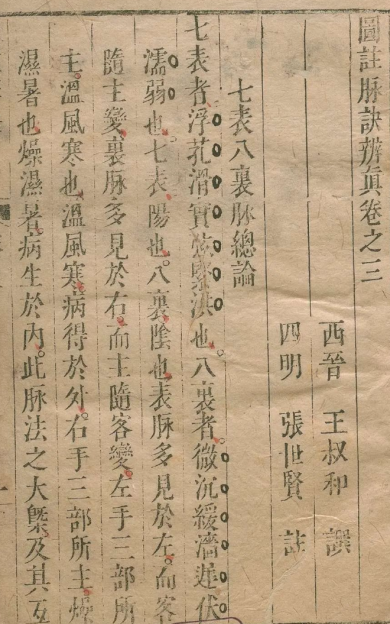 圖註脉訣辨眞卷之三
西晉 王叔和 譔
四明 張世賢 註
七表八裏脉總論
七表者浮芤滑實弦緊洪也八裏者微沉緩濇遲伏
濡弱也七表陽也八裏陰也表脉多見於左而客
隨主變裏脉多見於右而主隨客變左手三部所
主溫風寒也溫風寒病得於外右手三部所主燥
濕暑也燥濕暑病生於內此脉法之大槩及其互